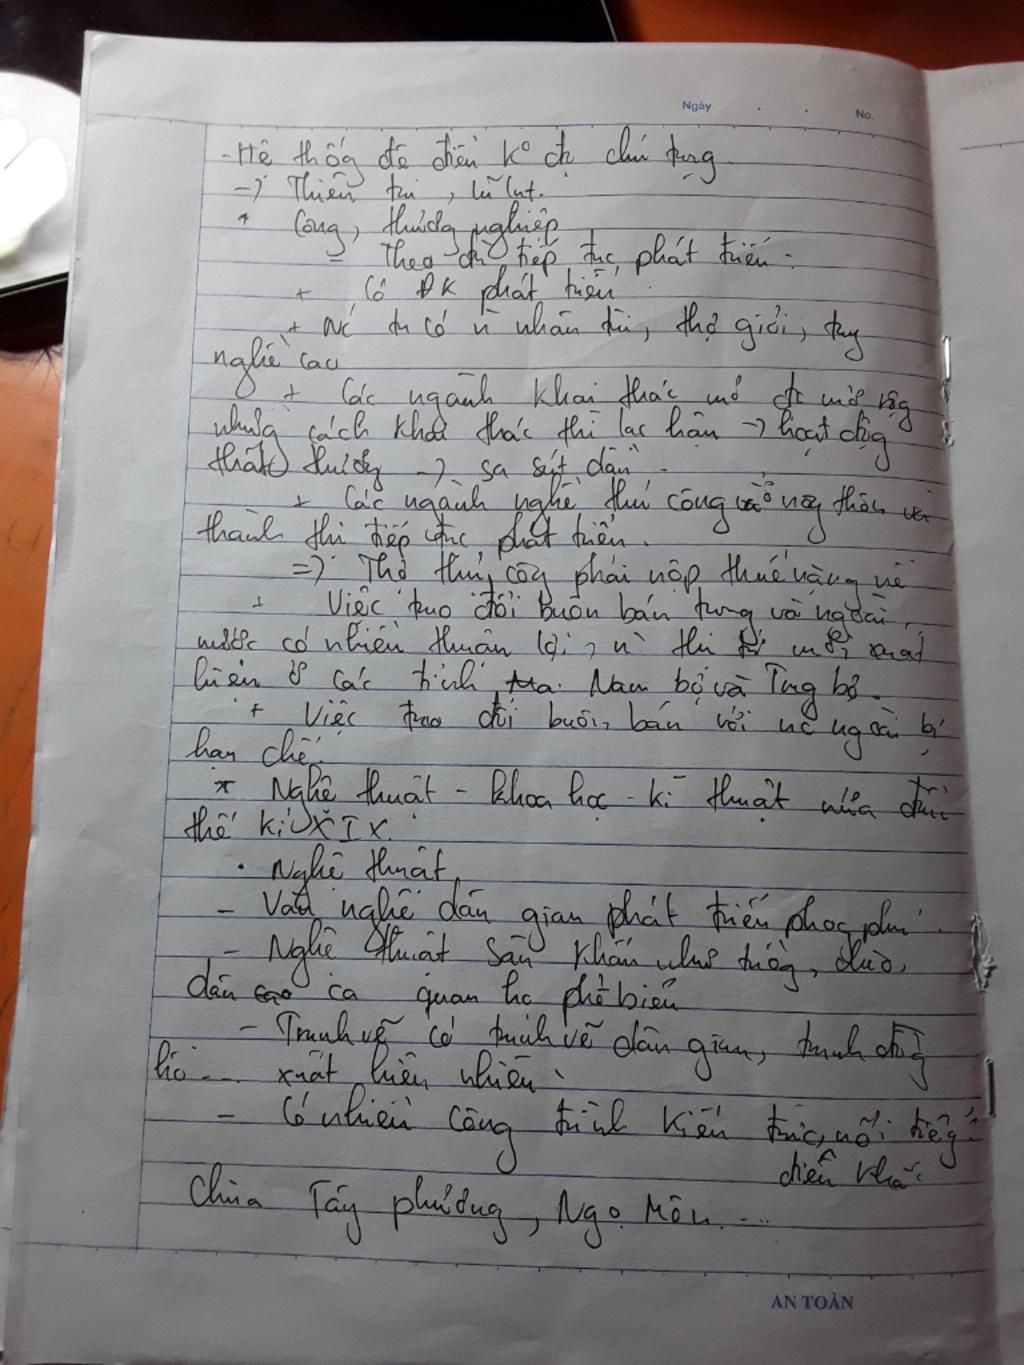 Ngày
No.
- Hê thốg đê điều k° đc chú tụng
=> Thiên tai, lũ lụt.
* Công, thương nghiệp
= Theo tiếp tục phát triển.
+ Có ĐK phát triển
+ Nc ta có n` nhân tài, thợ giỏi, tay
nghề cao
+ Các ngành khai thác mỏ đc mở rộg
nhưng cách khai thác thì lạc hậu -> hoạt độg
thất thườg -> sa sút dần.
+ Các ngành nghề thủ công ở nôg thôn và
thành thị tiếp tục phát triển.
=> Thợ thủ côg phải nộp thuế nặng nề
+ Việc trao đổi buôn bán trng và ngoài
nước có nhiều thuận lợi, n` thị tứ mới xuất
hiện ở các tỉnh Nam bộ và Trng bộ.
+ Việc trao đổi buôn bán với nc ngoài bị
hạn chế.
* Nghệ thuật - khoa học - kĩ thuật nửa đầu
thế kỉ XIX
. Nghệ thuật
- Văn nghệ dân gian phát triển phog phú.
- Nghệ thuật sân khấu như tuồg, chèo,
dân ca quan họ phổ biến
- Tranh vẽ có tranh vẽ dân gian, tranh đôg
hồ... xuất hiện nhiều
- Có nhiều công trình kiến trúc, nổi tiếg:
điêu khắc
Chùa Tây phương, Ngọ Môn...
AN TOÀN